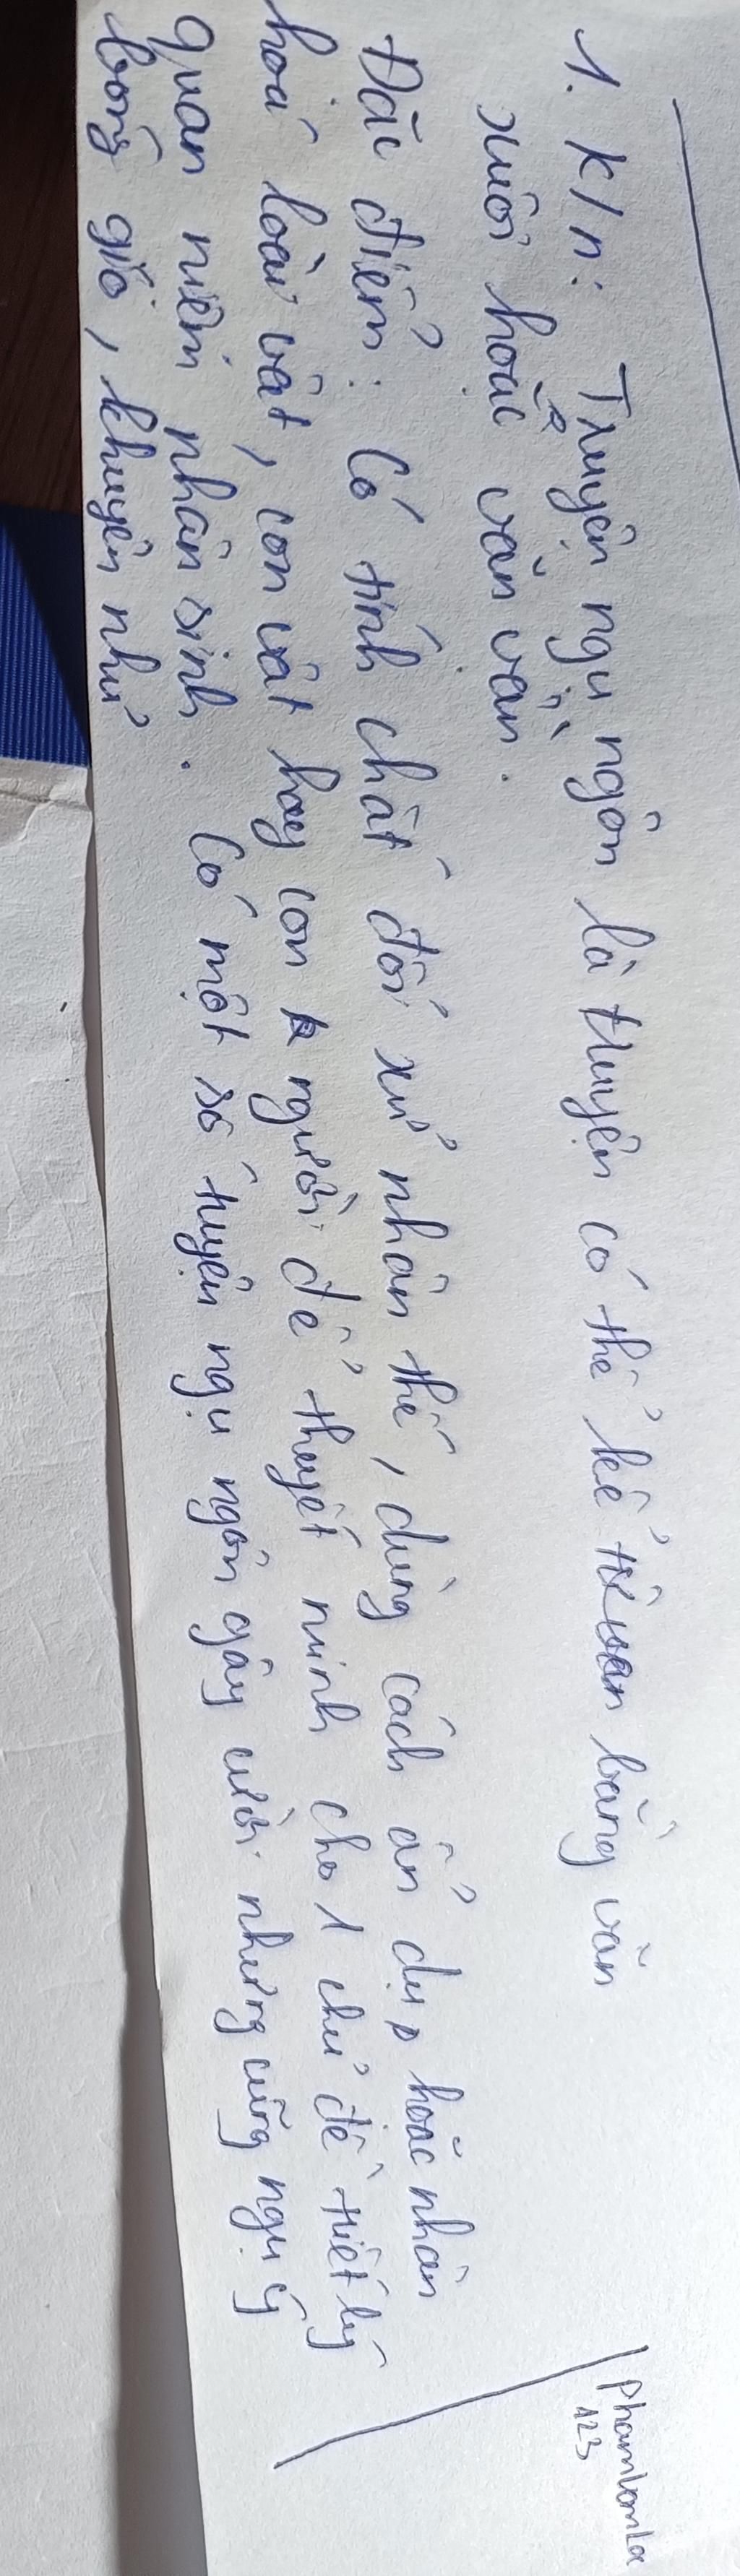 1. K/n: Truyện ngụ ngôn là truyện có thể kể bằng văn
xuôi hoặc văn vần.
Đặc điểm: Có tính chất đối xử nhân thế, dùng cách ẩn dụ hoặc nhân
hoá loài vật, con vật hay con người để thuyết minh cho 1 chủ đề triết lý
quan niệm nhân sinh. Có một số truyện ngụ ngôn gây cười nhưng cũng ngụ ý
bóng gió, khuyên nhủ
123